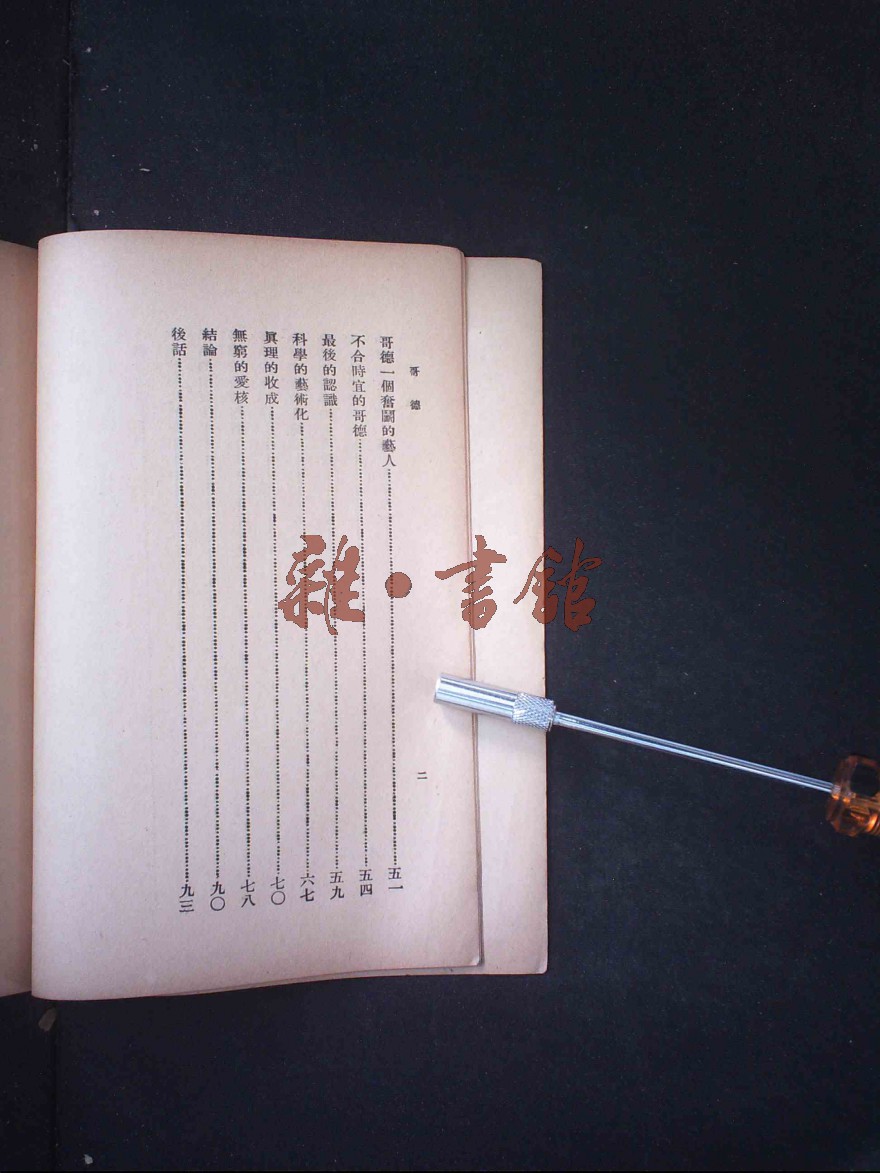 哥德
哥德一個奮鬪的藝人五一
不合時宜的哥德五四
最後的認識五九
科學的藝術化六七
眞理的收成七〇
無窮的愛核七八
結論九〇
後話九三
二
雜·書館